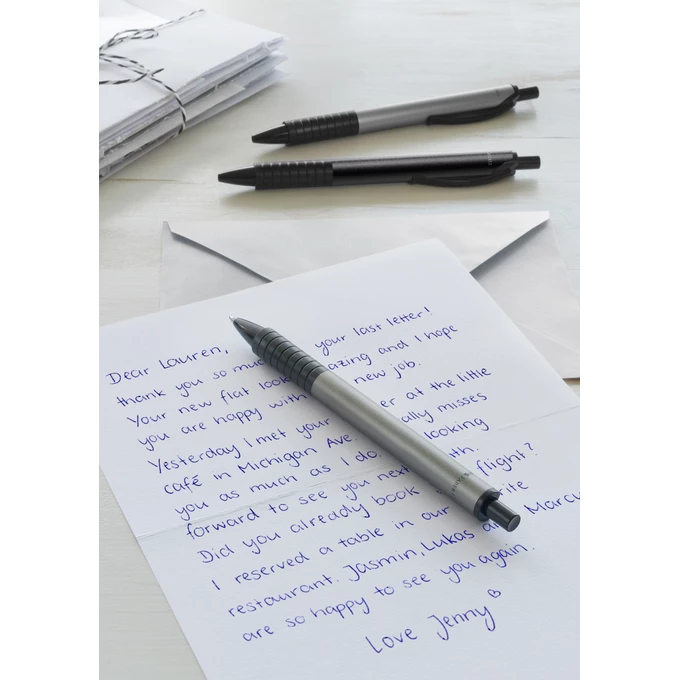 Dear Lauren,
thank you so much your last letter!
Your new flat look azing and I hope
you are happy with new job.
Yesterday I met your er at the little
café in Michigan Ave. ally misses
you as much as I do. looking
forward to see you next th.
Did you already book flight?
I reserved a table in our rite
restaurant. Jasmin, Lukas an Marcu
are so happy to see you again.
Love Jenny